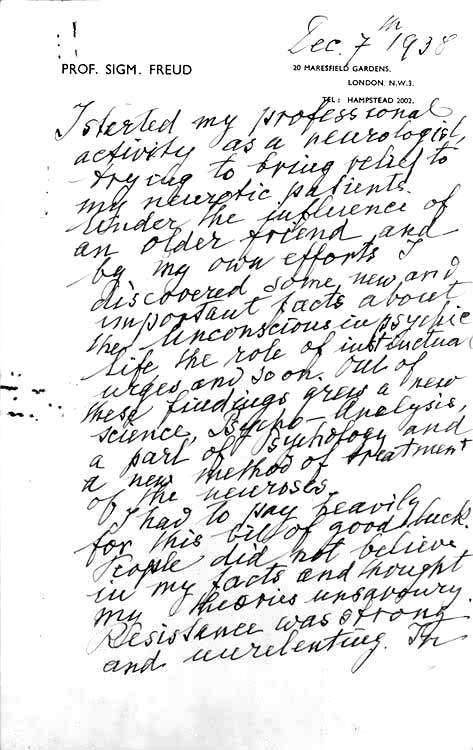 Dec. 7th 1938
PROF. SIGM. FREUD
20 MARESFIELD GARDENS,
LONDON. N.W.3.
TEL: HAMPSTEAD 2002.
I started my professional
activity as a neurologist,
trying to bring relief to
my neurotic patients.
Under the influence of
an older friend and
by my own efforts I
discovered some new and
important facts about
the Unconscious in psychic
life, the role of instinctual
urges and so on. Out of
these findings grew a new
science, Psycho-Analysis,
a part of Psychology and
a new method of treatment
of the neuroses.
I had to pay heavily
for this bit of good luck.
People did not believe
in my facts and thought
my theories unsavoury.
Resistance was strong
and unrelenting. In